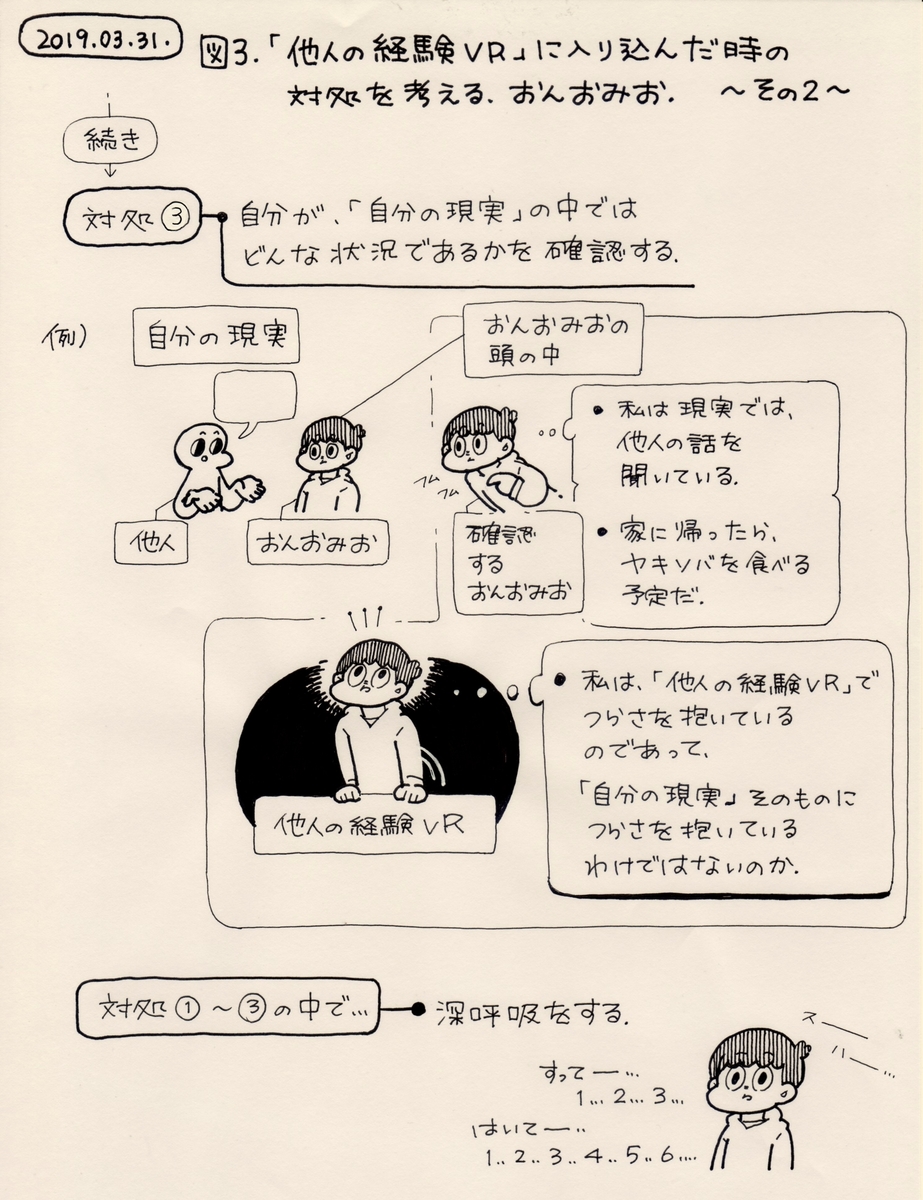 2019.03.31.
図3.「他人の経験VR」に入り込んだ時の
対処を考える.おんおみお. 〜その2〜
続き
対処③
自分が、「自分の現実」の中では
どんな状況であるかを確認する.
例)
自分の現実
おんおみおの
頭の中
他人
おんおみお
フムフム
確認
する
おんおみお
• 私は現実では、
他人の話を
聞いている.
• 家に帰ったら、
ヤキソバを食べる
予定だ.
他人の経験VR
• 私は、「他人の経験VR」で
つらさを抱いている
のであって、
「自分の現実」そのものに
つらさを抱いている
わけではないのか.
対処①〜③の中で...
深呼吸をする.
スー
ハー...
すってー...
1... 2... 3...
はいてー...
1.. 2.. 3.. 4.. 5.. 6....